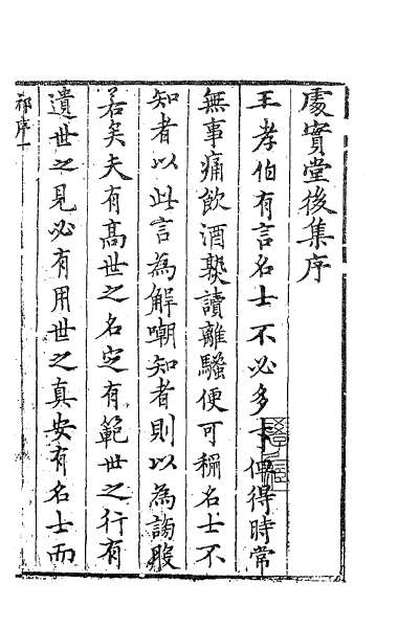 處實堂後集序
王孝伯有言名士不必多才但得時常
無事痛飲酒熟讀離騷便可稱名士不
知者以此言為解嘲知者則以為謅般
若矣夫有高世之名定有範世之行有
遺世之見必有用世之真安有名士而
祁序一